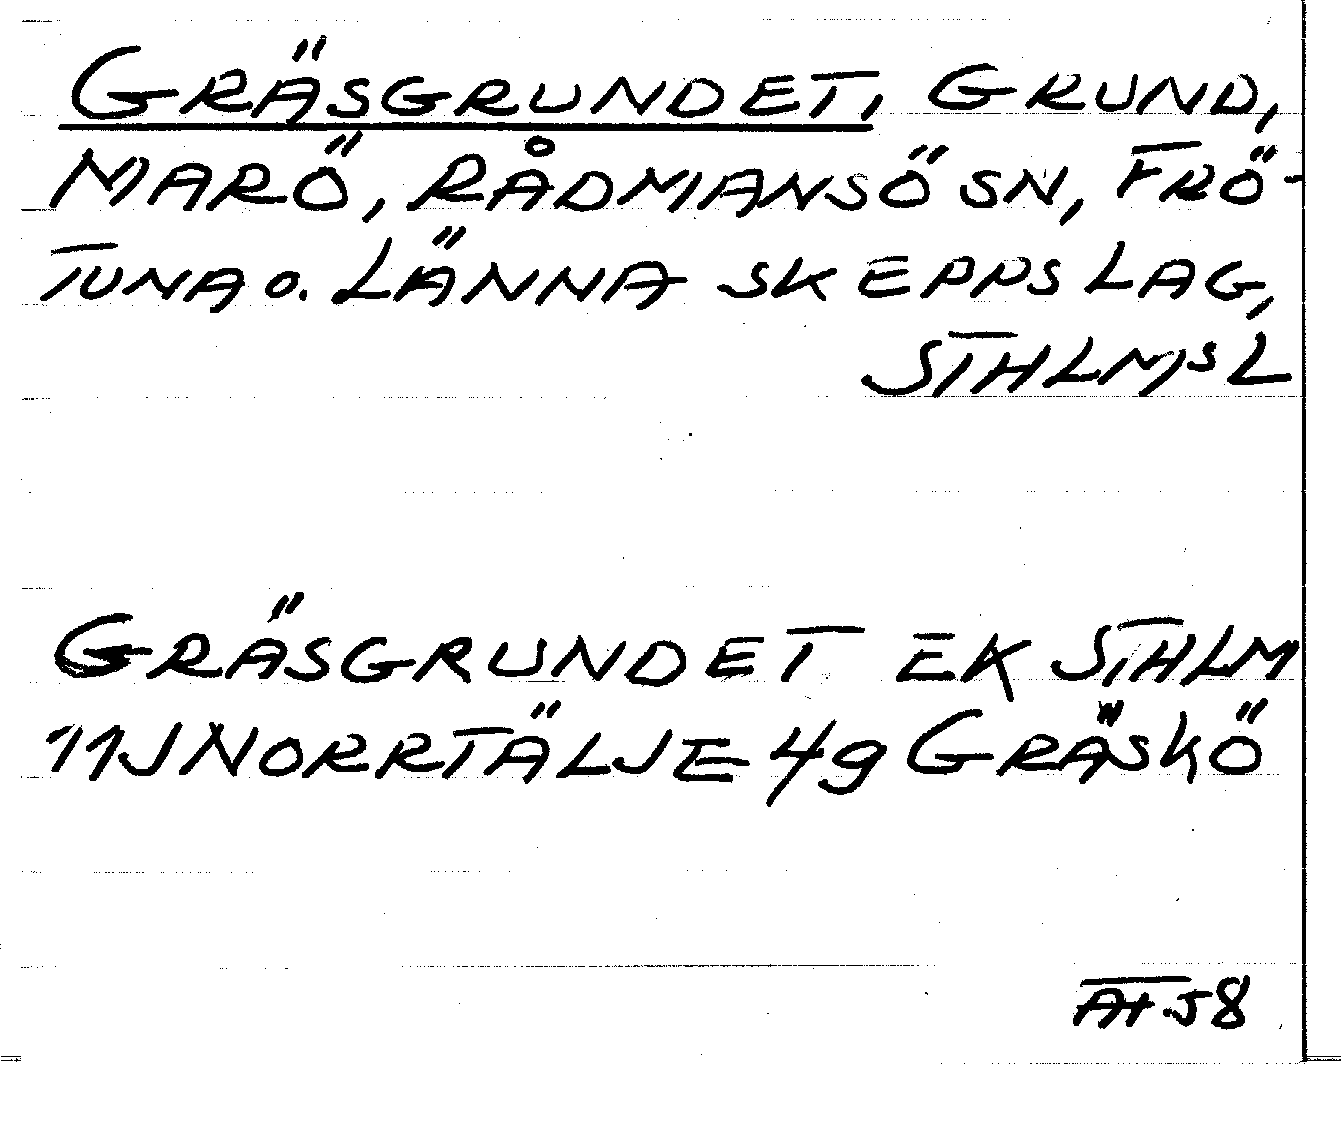 GRÄSGRUNDET, GRUND,
MARÖ, RÅDMANSÖ SN, FRÖ-
TUNA o. LÄNNA SKEPPSLAG,
STHLMS L
GRÄSGRUNDET EK STHLM
11J NORRTÄLJE 4g GRÄSKÖ
AT.58